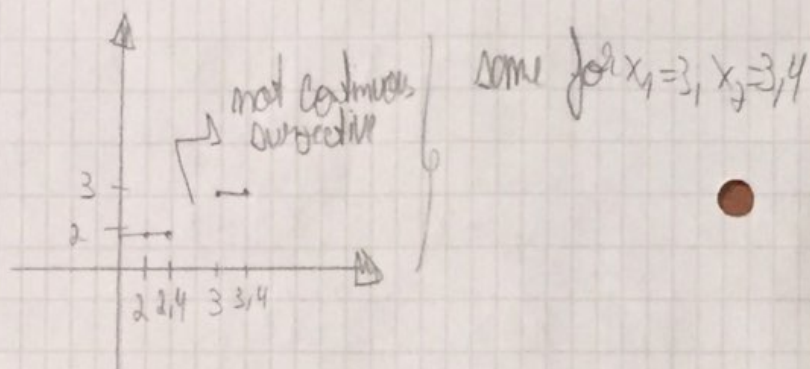 not continuous
surjective
same for x₁=3, x₂=3,4
3
2
2 2,4 3 3,4